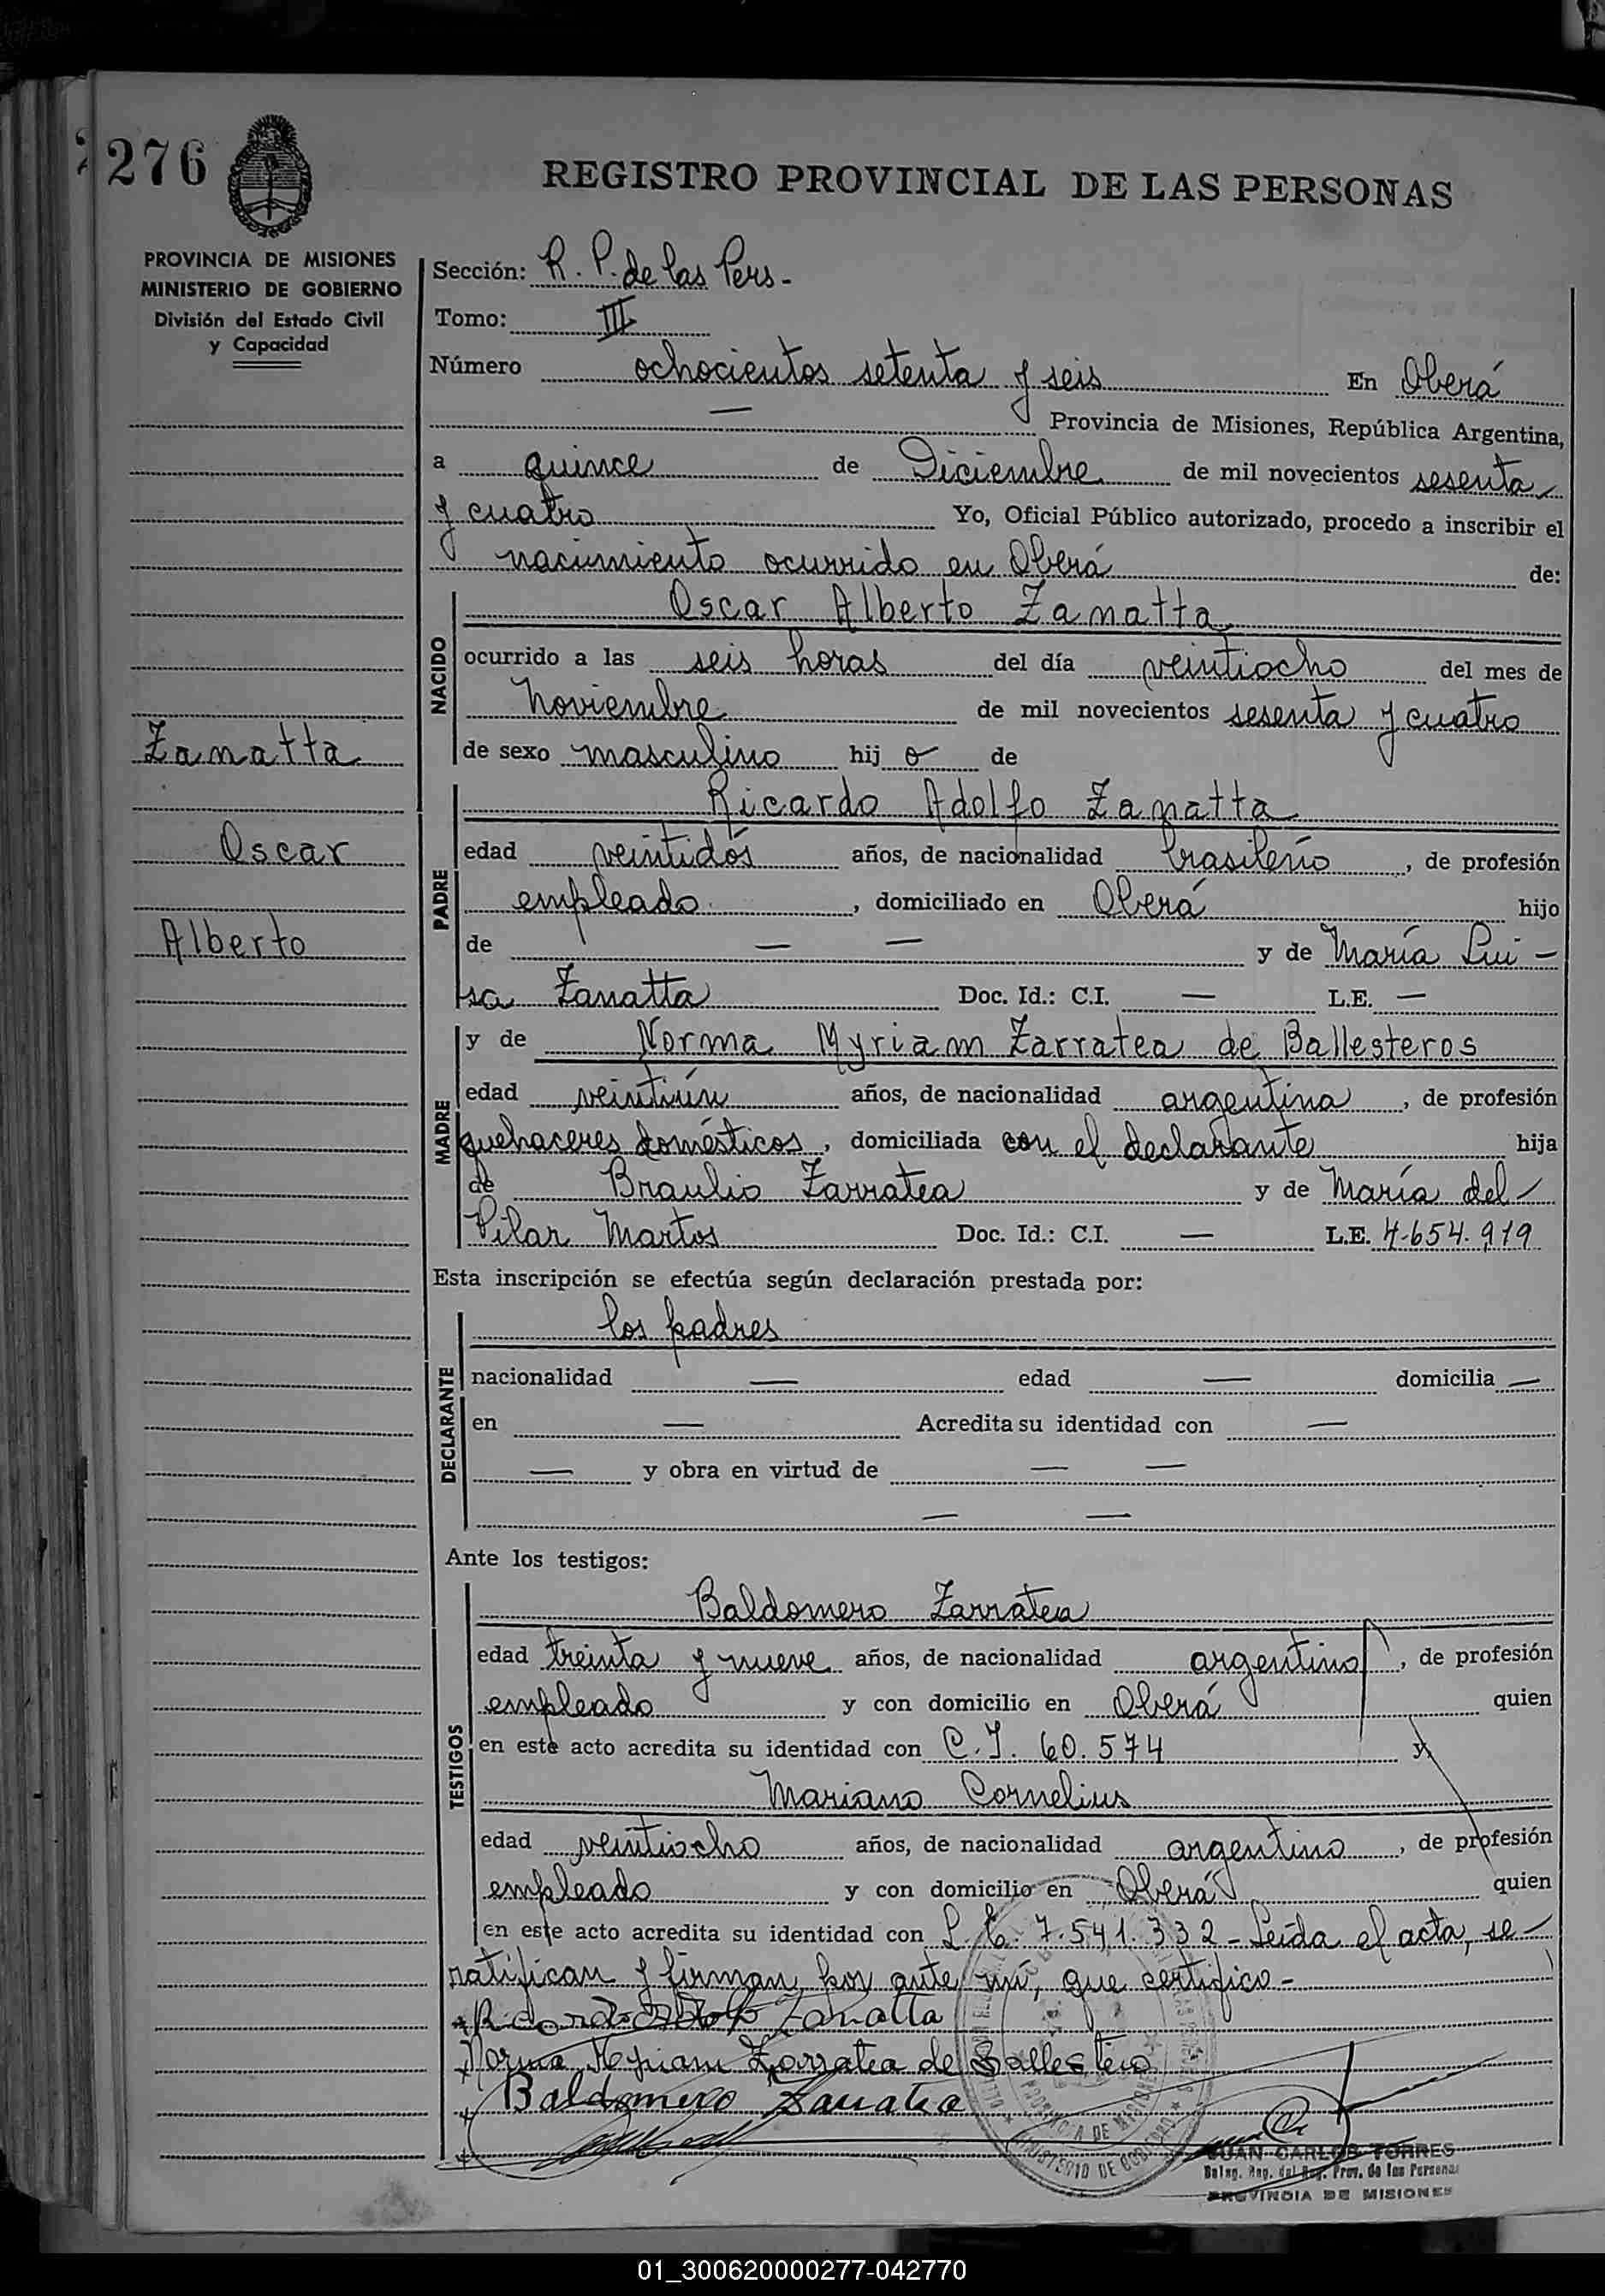 276
REGISTRO PROVINCIAL DE LAS PERSONAS
PROVINCIA DE MISIONES
MINISTERIO DE GOBIERNO
División del Estado Civil
y Capacidad
Zanatta
Oscar
Alberto
Sección: R. P. de las Pers -
Tomo: III
Número ochocientos setenta y seis En Oberá
— Provincia de Misiones, República Argentina,
a quince de Diciembre de mil novecientos sesenta
y cuatro Yo, Oficial Público autorizado, procedo a inscribir el
nacimiento ocurrido en Oberá de:
NACIDO
Oscar Alberto Zanatta
ocurrido a las seis horas del día veintiocho del mes de
Noviembre de mil novecientos sesenta y cuatro
de sexo masculino hij o de
PADRE
Ricardo Adolfo Zanatta
edad veintidós años, de nacionalidad brasileño, de profesión
empleado, domiciliado en Oberá hijo
de — — y de María Lui -
sa Zanatta Doc. Id.: C.I. — L.E. —
MADRE
y de Norma Myriam Zarratea de Ballesteros
edad veintiún años, de nacionalidad argentina, de profesión
quehaceres domésticos, domiciliada con el declarante hija
de Braulio Zarratea y de María del
Pilar Martos Doc. Id.: C.I. — L.E. 4.654.919
Esta inscripción se efectúa según declaración prestada por:
DECLARANTE
los padres
nacionalidad — edad — domicilia —
en — Acredita su identidad con —
— y obra en virtud de — —
— —
Ante los testigos:
TESTIGOS
Baldomero Zarratea
edad treinta y nueve años, de nacionalidad argentino, de profesión
empleado y con domicilio en Oberá quien
en este acto acredita su identidad con C.I. 60.574 y
Mariano Cornelius
edad veintiocho años, de nacionalidad argentino, de profesión
empleado y con domicilio en Oberá quien
en este acto acredita su identidad con L.E. 7.541.332 - Leída el acta, se
ratifican y firman por ante mí, que certifico -
Ricardo Adolfo Zanatta
Norma Myriam Zarratea de Ballestero
Baldomero Zarratea
PROVINCIA DE MISIONES
MINISTERIO DE GOBIERNO
JUAN CARLOS TORRES
Prov. de las Personas
PROVINCIA DE MISIONES
01_300620000277-042770